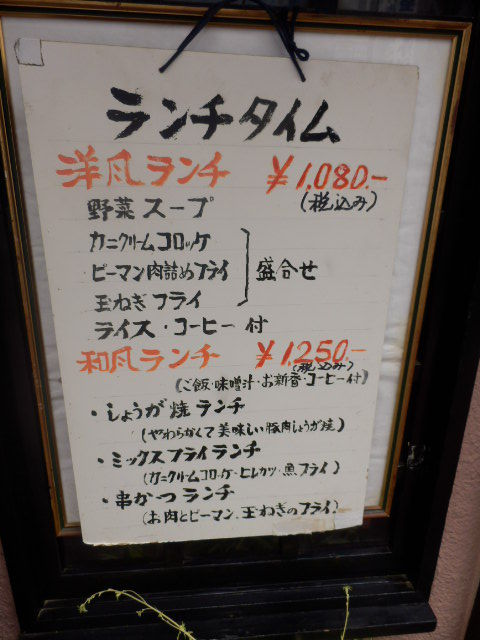 ランチタイム
洋風ランチ ￥1,080.-
(税込み)
野菜スープ
カニクリームコロッケ
ピーマン肉詰めフライ 盛合せ
玉ねぎフライ
ライス・コーヒー付
和風ランチ ￥1,250.-
(税込み)
(ご飯・味噌汁・お新香・コーヒー付)
・しょうが焼ランチ
(やわらかくて美味しい豚肉しょうが焼)
・ミックスフライランチ
(カニクリームコロッケ・ヒレカツ・魚フライ)
・串かつランチ
(お肉とピーマン、玉ねぎのフライ)